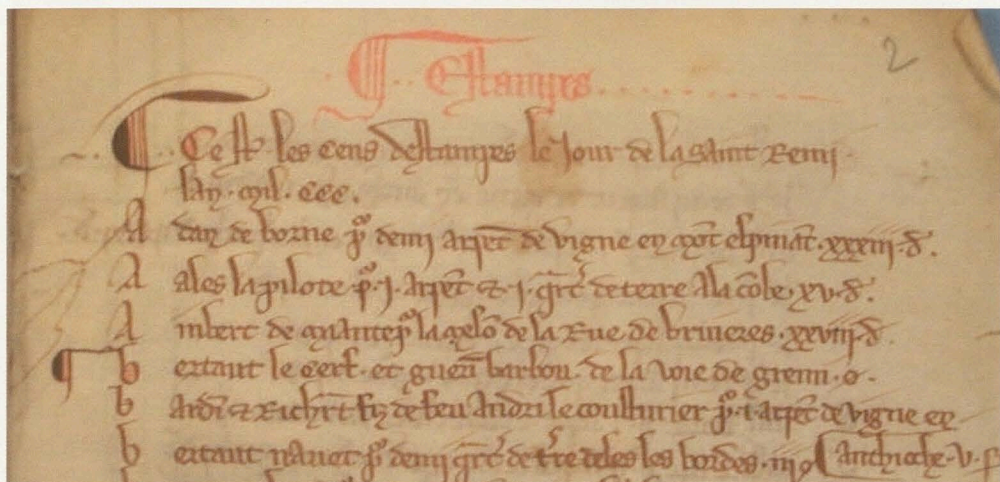 2
¶ Estampes
Ce st les cens destampes le jour de la saint Remi
lan . mil . ccc .
A dan de borne po demi arpēt de vigne en mōt espināt . xxxiii . d .
A ales la pilote . po . j . arpēt et . j . qrt de terre a la cōbe . xv . d .
A mbert de la mesō de la Rue de bruieres . xxviii . d
b ertaut le cerf . et barbou . de la voie de . o .
b ardī et Richrt fiz de feu Andri le cousturier po . i . arpēt de vigne en
b ertaut navet po demi qrt de tre deles les bordes . iii o anthioche . v . s